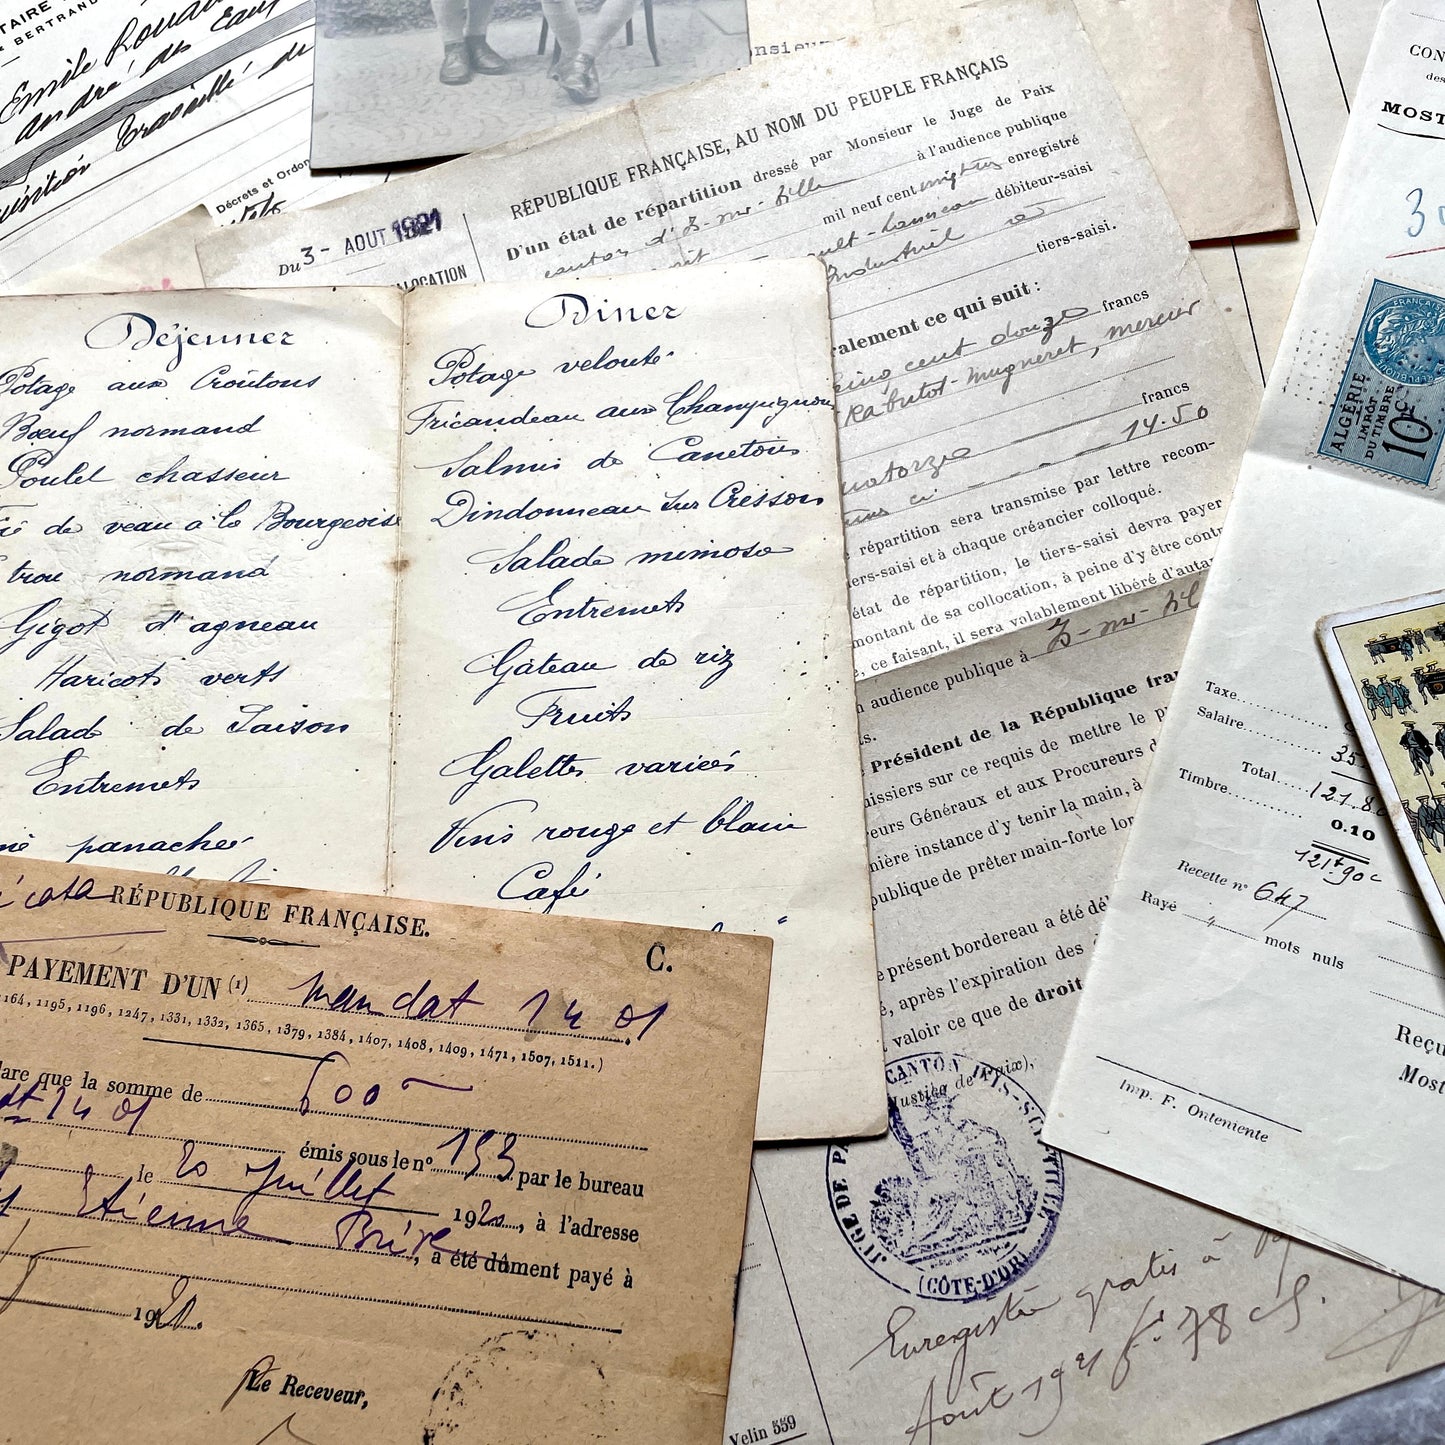 TAIRE
& BERTRAND
Emile
André des Eaux
travaillé de
Décrets et Ordon
Monsieur
RÉPUBLIQUE FRANÇAISE, AU NOM DU PEUPLE FRANÇAIS
D'un état de répartition dressé par Monsieur le Juge de Paix
à l'audience publique
mil neuf cent enregistré
débiteur-saisi
Industriel
tiers-saisi.
Du 3 - AOUT 1921
ALLOCATION
ralement ce qui suit :
cinq cent douze francs
Rabutot-Mugneret, mercier
francs
quatorze
14.50
répartition sera transmise par lettre recom-
iers-saisi et à chaque créancier colloqué.
état de répartition, le tiers-saisi devra payer
montant de sa collocation, à peine d'y être contr
, ce faisant, il sera valablement libéré d'autan
n audience publique à
Président de la République fran
uissiers sur ce requis de mettre le p
eurs Généraux et aux Procureurs d
mière instance d'y tenir la main, à
publique de prêter main-forte lor
e présent bordereau a été dél
é, après l'expiration des
valoir ce que de droit
Justice de Paix),
JUGE DE PAIX
CANTON D'IS-S
(CÔTE-D'OR)
Enregistré gratis à
Août 1921 78
Velin 559
Déjeuner
Potage aux Croûtons
Bœuf normand
Poulet chasseur
de veau à la Bourgeoise
trou normand
Gigot d'agneau
Haricots verts
Salade de Saison
Entremets
panachée
Diner
Potage velouté
Fricandeau aux Champignon
Salmis de Canetons
Dindonneau sur Cresson
Salade mimosa
Entremets
Gâteau de riz
Fruits
Galettes variées
Vins rouge et blanc
Café
RÉPUBLIQUE FRANÇAISE.
C.
PAYEMENT D'UN (1) mandat 14 01
1164, 1195, 1196, 1247, 1331, 1332, 1365, 1379, 1384, 1407, 1408, 1409, 1471, 1507, 1511.)
lare que la somme de 500
14 01
émis sous le n° 193 par le bureau
le 20 Juillet 1920, à l'adresse
Etienne , a été dûment payé à
1920.
Le Receveur,
CON
des
MOST
FRANÇAISE
ALGÉRIE
IMPÔT
DU TIMBRE
10c
Taxe
Salaire 35
Total 121.80
Timbre 0.10
121f90c
Recette n° 647
Rayé mots nuls
Reçu
Most
Imp. F. Onteniente